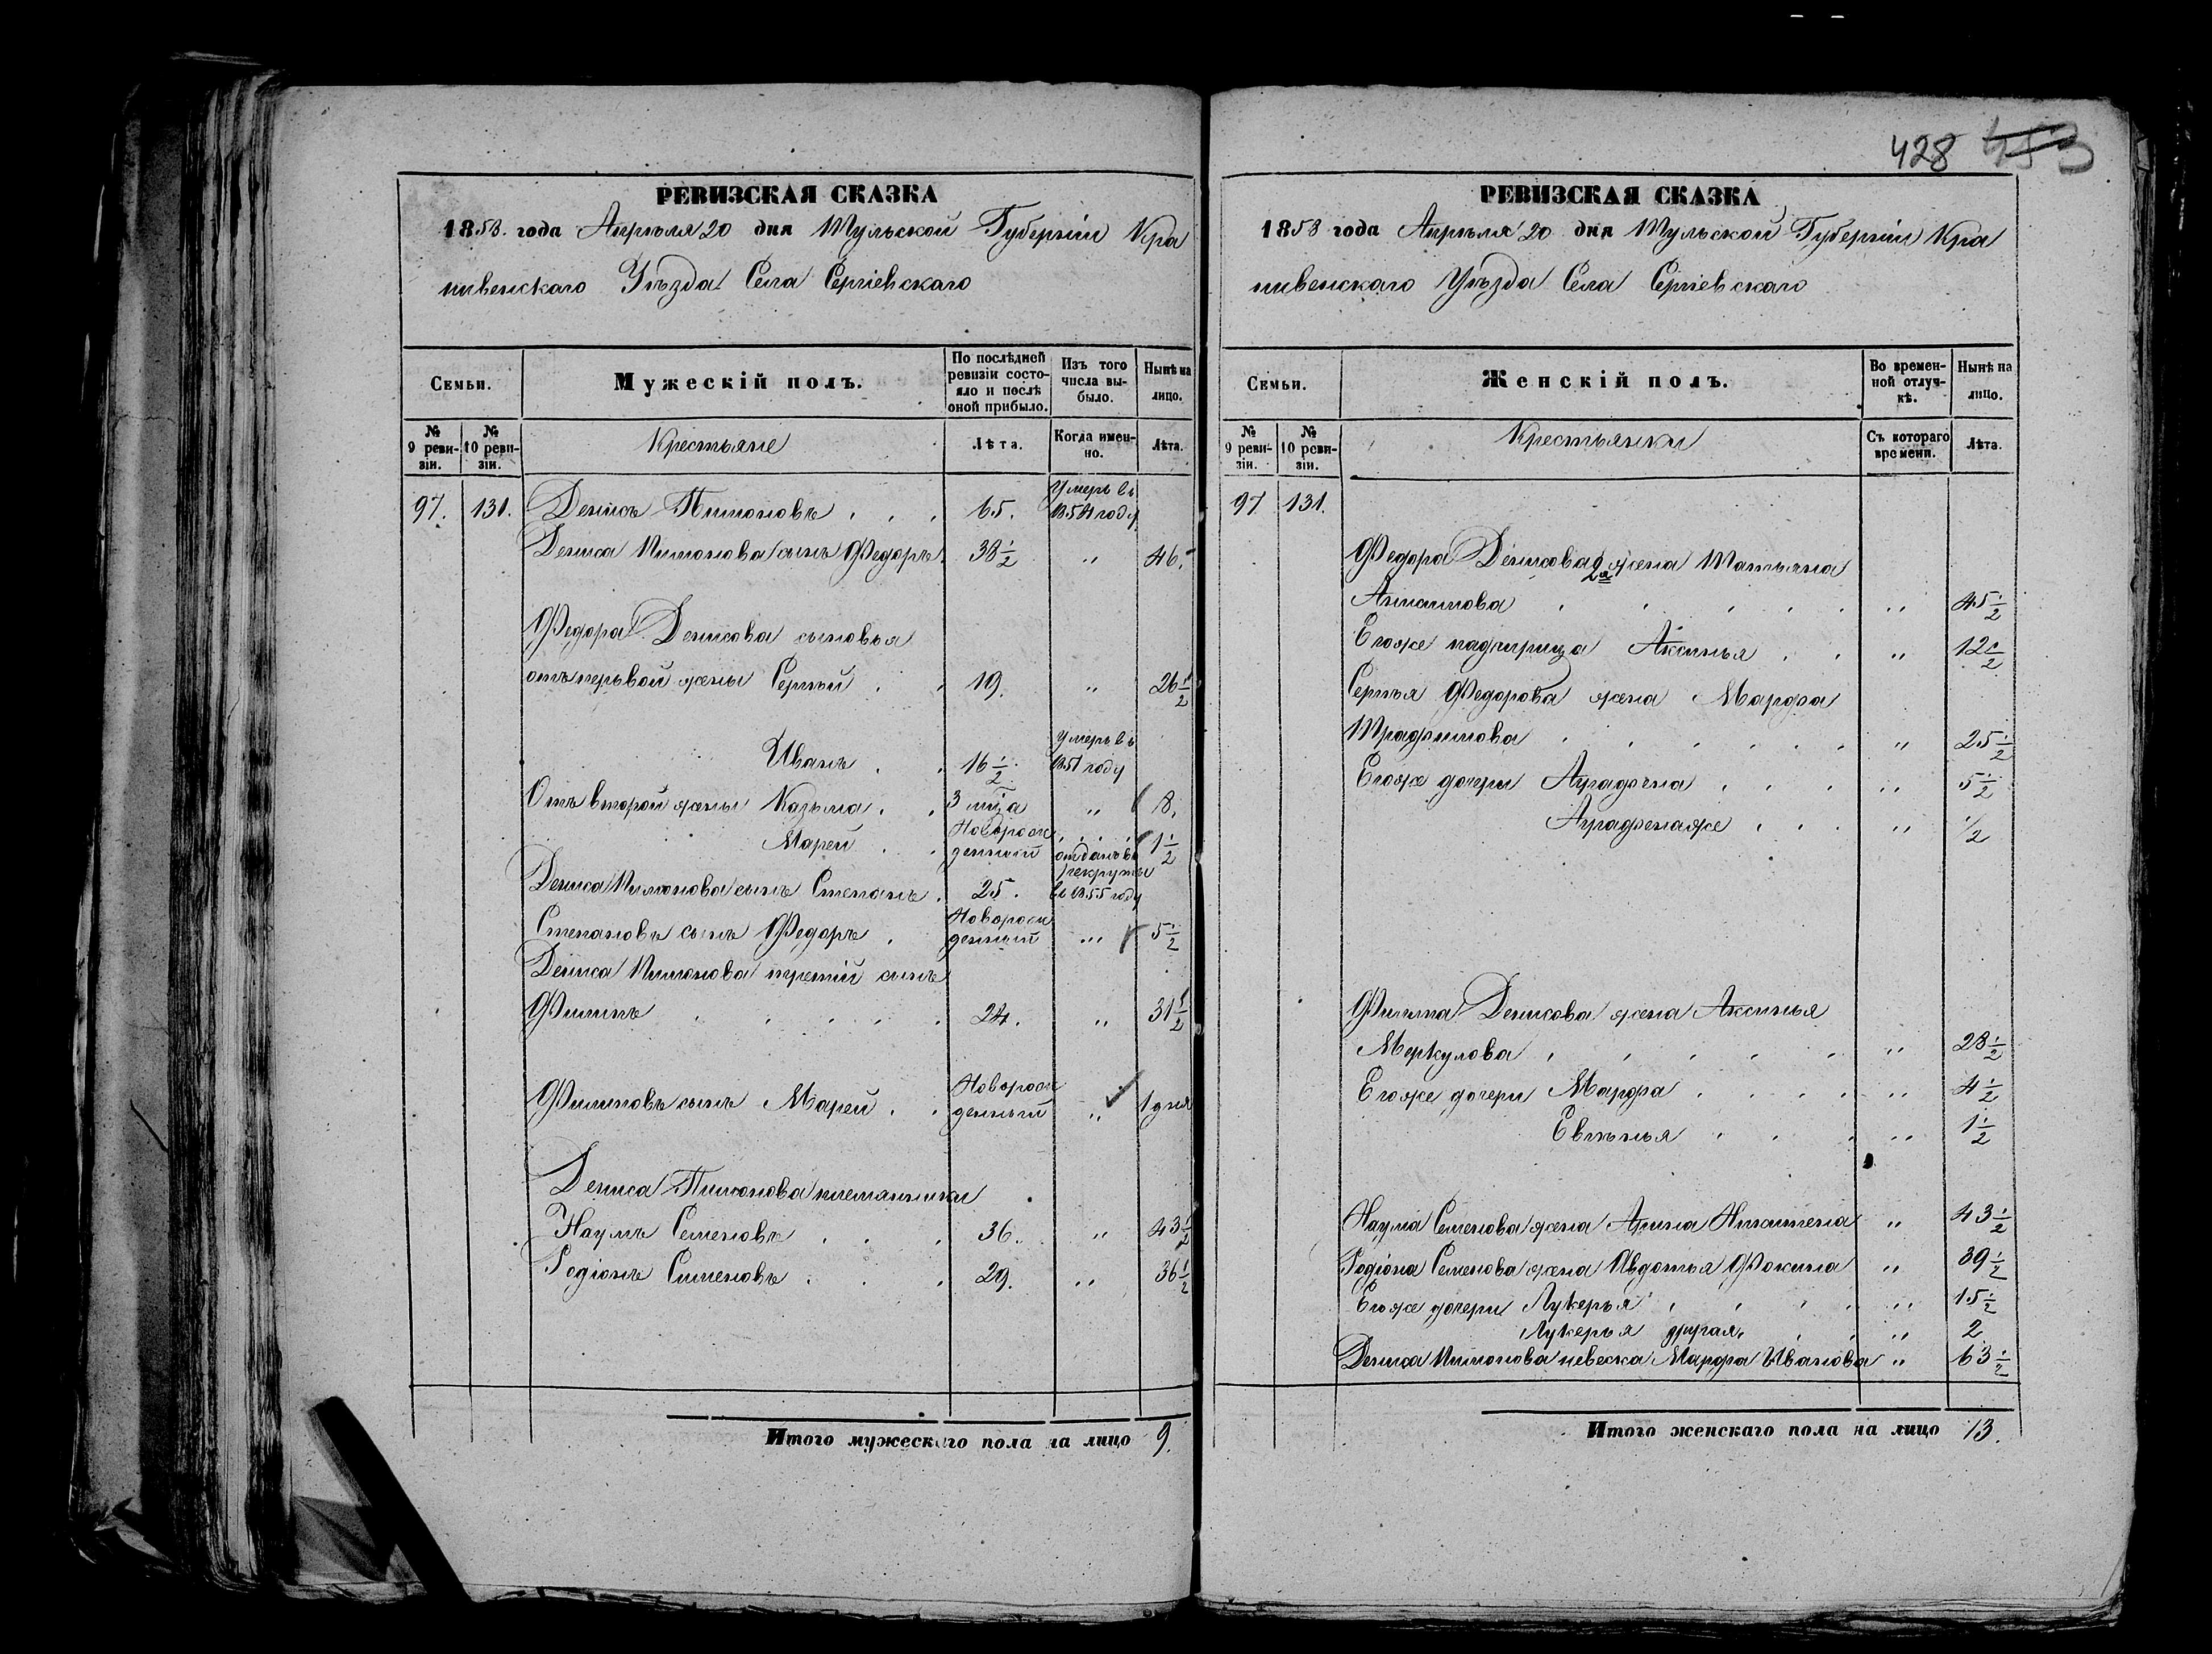 428 453
РЕВИЗСКАЯ СКАЗКА
1858. года Апрѣля 20 дня Тульской Губерніи Кра
пивенскаго Уѣзда Села Сергіевскаго
Семьи.
Мужескій полъ.
По послѣдней ревизіи состо-
яло и послѣ оной прибыло.
Изъ того числа вы-
было.
Нынѣ на лицо.
№ 9 реви-
зіи.
№ 10 реви-
зіи.
Крестьяне
Лѣта.
Когда имен-
но.
Лѣта.
97. 131. Денисъ Пимоновъ 65. Умеръ въ 1854 году
Дениса Пимонова сынъ Федоръ 38½ " 46.
Федора Денисова сыновья
отъ первой жены Сергѣй 19. " 26½
Иванъ 16½ Умеръ въ 1851 году
Отъ второй жены Казьма 3 мца " 8.
Марей Новорож
денный 1½
Дениса Пимонова сынъ Степанъ 25. отданъ въ рекруты въ 1855 году
Степановъ сынъ Федоръ Новорож
денный " 5½
Дениса Пимонова третій сынъ
Филипъ 24. " 31½
Филиповъ сынъ Марей Новорож
денный " 1 дня
Дениса Пимонова племянники
Наумъ Семеновъ 36. " 43½
Родіонъ Семеновъ 29. " 36½
Итого мужескаго пола на лицо 9.
РЕВИЗСКАЯ СКАЗКА
1858 года Апрѣля 20 дня Тульской Губерніи Кра
пивенскаго Уѣзда Села Сергіевскаго
Семьи.
Женскій полъ.
Во времен-
ной отлуч-
кѣ.
Нынѣ на лицо.
№ 9 реви-
зіи.
№ 10 реви-
зіи.
Крестьянки
Съ котораго времени.
Лѣта.
97 131.
Федора Денисова 2я жена Татьяна
Антипова " 45½
Егоже падчирица Аксинья " 12½
Сергѣя Федорова жена Марфа
Трафимова " 25½
Егоже дочери Аграфена " 5½
Аграфенаже " ½
Филипа Денисова жена Аксинья
Меркулова " 28½
Егоже дочери Марфа " 4½
Евгѣнья " 1½
Наума Семенова жена Арина " 43½
Родіона Семенова жена Авдотья Фокина " 39½
Егоже дочери Лукерья " 15½
Лукерья другая " 2
Дениса Пимонова невеска Марфа Иванова " 63½
Итого женскаго пола на лицо 13.